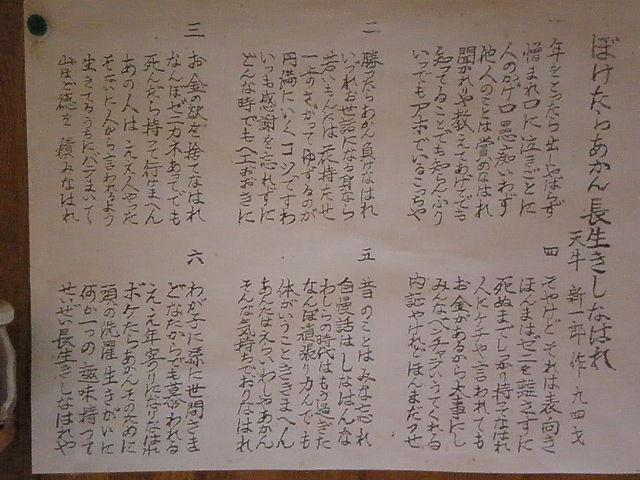 ぼけたらあかん長生きしなはれ
天牛 新一郎 作 九四才
年をとったら出しゃばらず
憎まれ口に泣きごとに
人のかげ口愚痴いわず
他人のことは賞めなはれ
聞かれりゃ教えてあげてでも
知ってることでも知らんふり
いつでもアホでいるこっちゃ
二
勝ったらあかん負けなはれ
いづれお世話になる身なら
若いもんには花持たせ
一歩さがってゆずるのが
円満にいくコツですわ
いつも感謝を忘れずに
どんな時でもヘエおおきに
三
お金の欲を捨てなはれ
なんぼゼニカネあってでも
死んだら持って行けまへん
あの人はええ人やった
そないに人から言われるよう
生きてるうちにバラまいて
山ほど徳を積みなはれ
四
そやけどそれは表向き
ほんまはゼニを離さずに
死ぬまでしっかり持ってなはれ
人にケチやと言われても
お金があるから大事にし
みんなベンチャラいうてくれる
内証やけれどほんまだっせ
五
昔のことはみな忘れ
自慢話はしなはんな
わしらの時代はもう過ぎた
なんぼ頑張り力んでも
体がいうことききまへん
あんたはえらいわしゃあかん
そんな気持ちでおりなはれ
六
わが子に孫に世間さま
どなたからでも慕われる
ええ年寄りになりなはれ
ボケたらあかんそのために
頭の洗濯生きがいに
何か一つの趣味持って
せいぜい長生きしなはれや